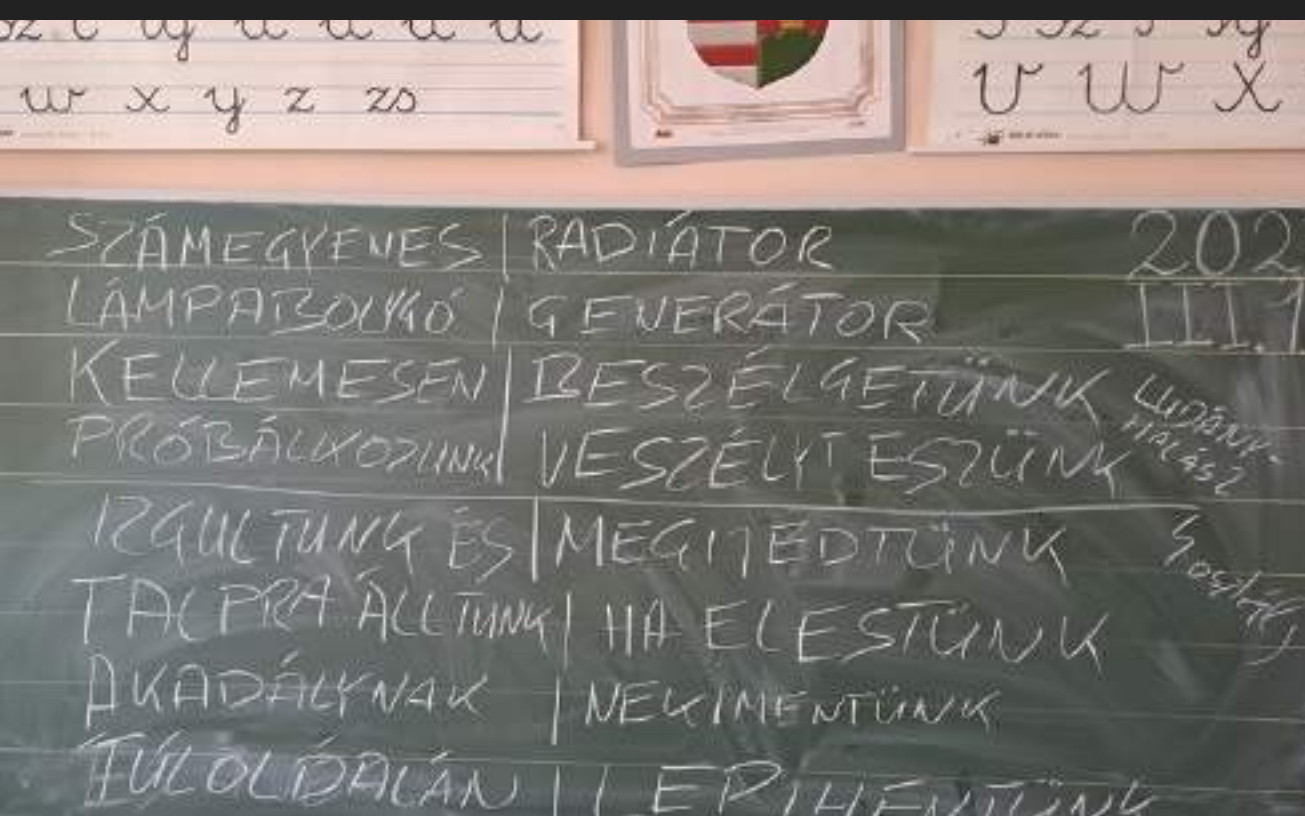 w x y z zs
V W X
SZÁMEGYENES | RADIÁTOR
LÁMPABOLYGÓ | GENERÁTOR
KELLEMESEN | BESZÉLGETÜNK
PRÓBÁLKOZUNK | VESZÉLYT ESZÜNK
IZGULTUNK ÉS | MEGIJEDTÜNK
TALPRA ÁLLTUNK | HA ELESTÜNK
AKADÁLYNAK | NEKIMENTÜNK
TÚLOLDALÁN | LEPIHENTÜNK
202
III.1
LUDÁNY-
HALÁSZ
osztály